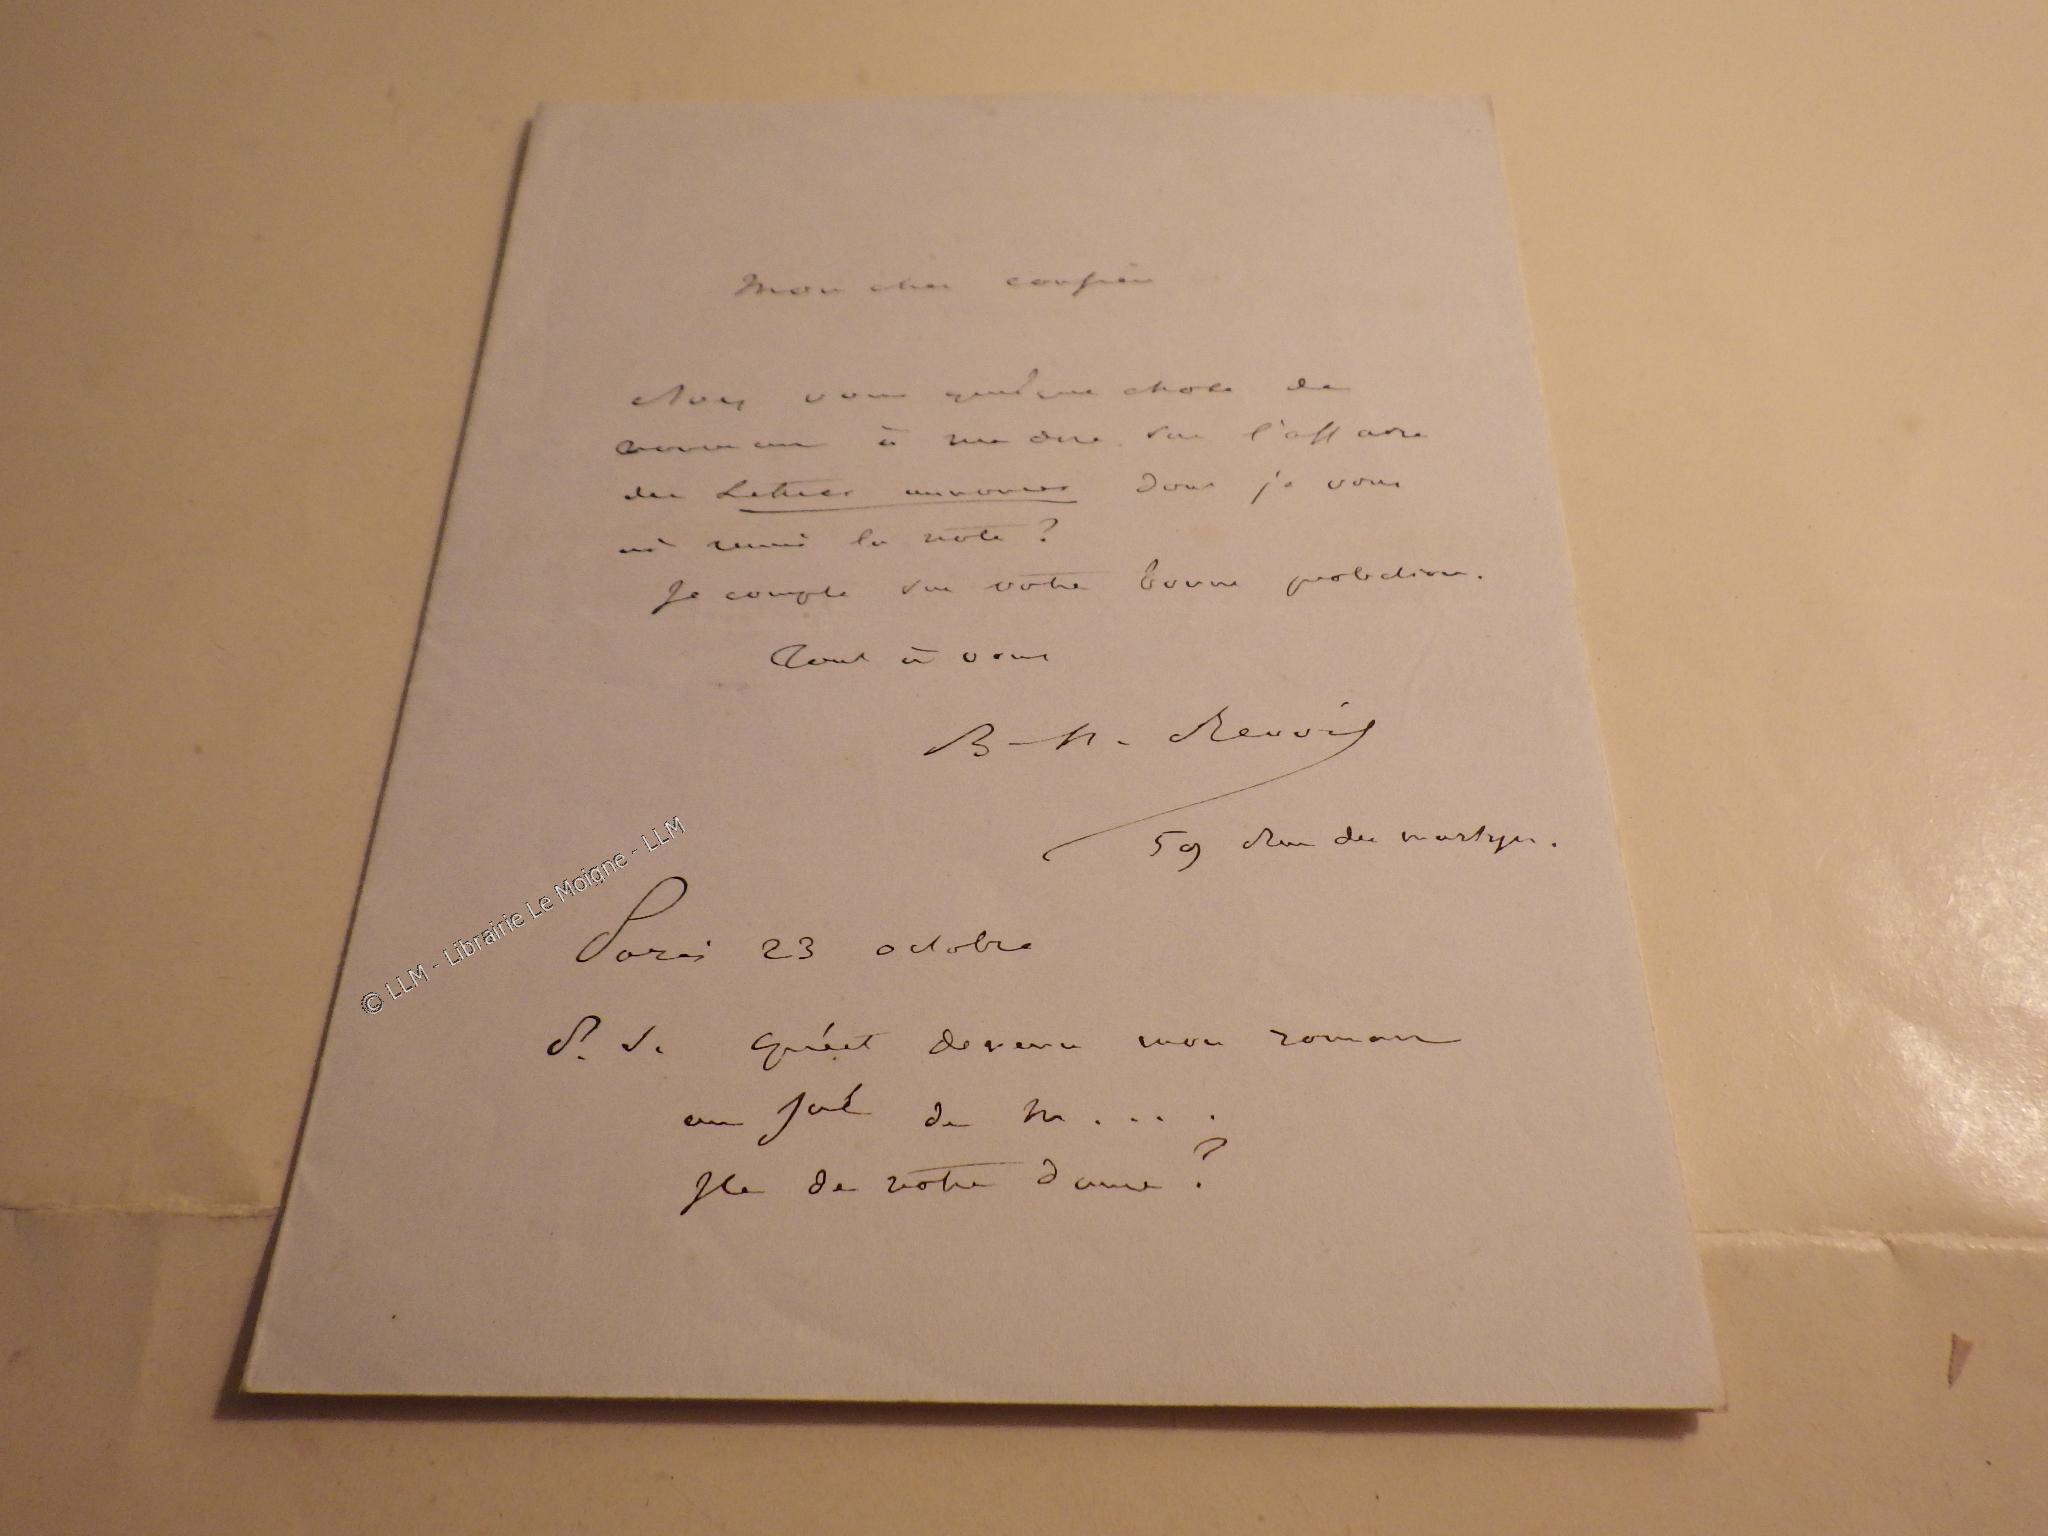 Mon cher confrère
Avez vous quelque chose de
nouveau à me dire sur l'affaire
des Lettres dont je vous
ai remis la note?
Je compte sur votre bonne protection.
Tout à vous
B-H. Revoil
59 Rue des martyrs.
© LLM - Librairie Le Moigne - LLM
Paris 23 octobre
P. S. Qu'est devenu mon roman
au de M....
de notre Dame?